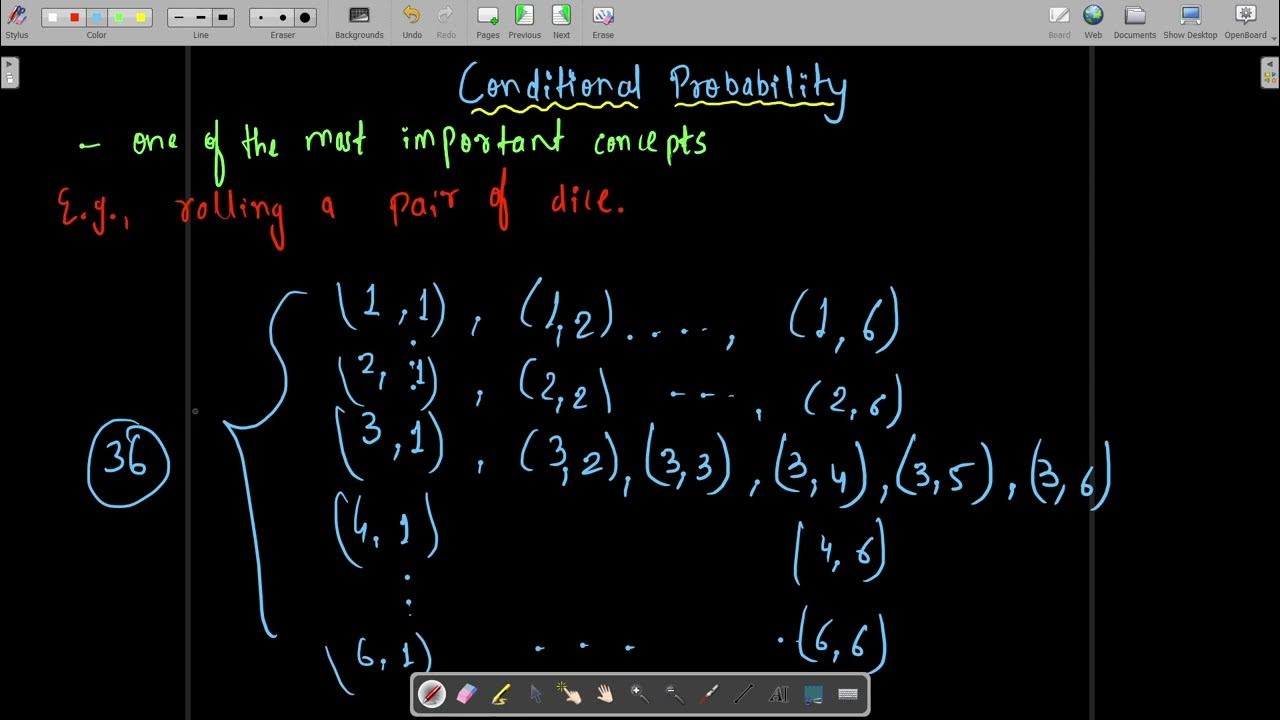 Stylus Color Line Eraser Backgrounds Undo Redo Pages Previous Next Erase Board Web Documents Show Desktop OpenBoard
Conditional Probability
- one of the most important concepts
E.g., rolling a pair of dice.
(1,1), (1,2)....., (1,6)
(2,1), (2,2) ---., (2,6)
(3,1), (3,2), (3,3), (3,4), (3,5), (3,6)
36
(4,1) (4,6)
(6,1) . . . . (6,6)